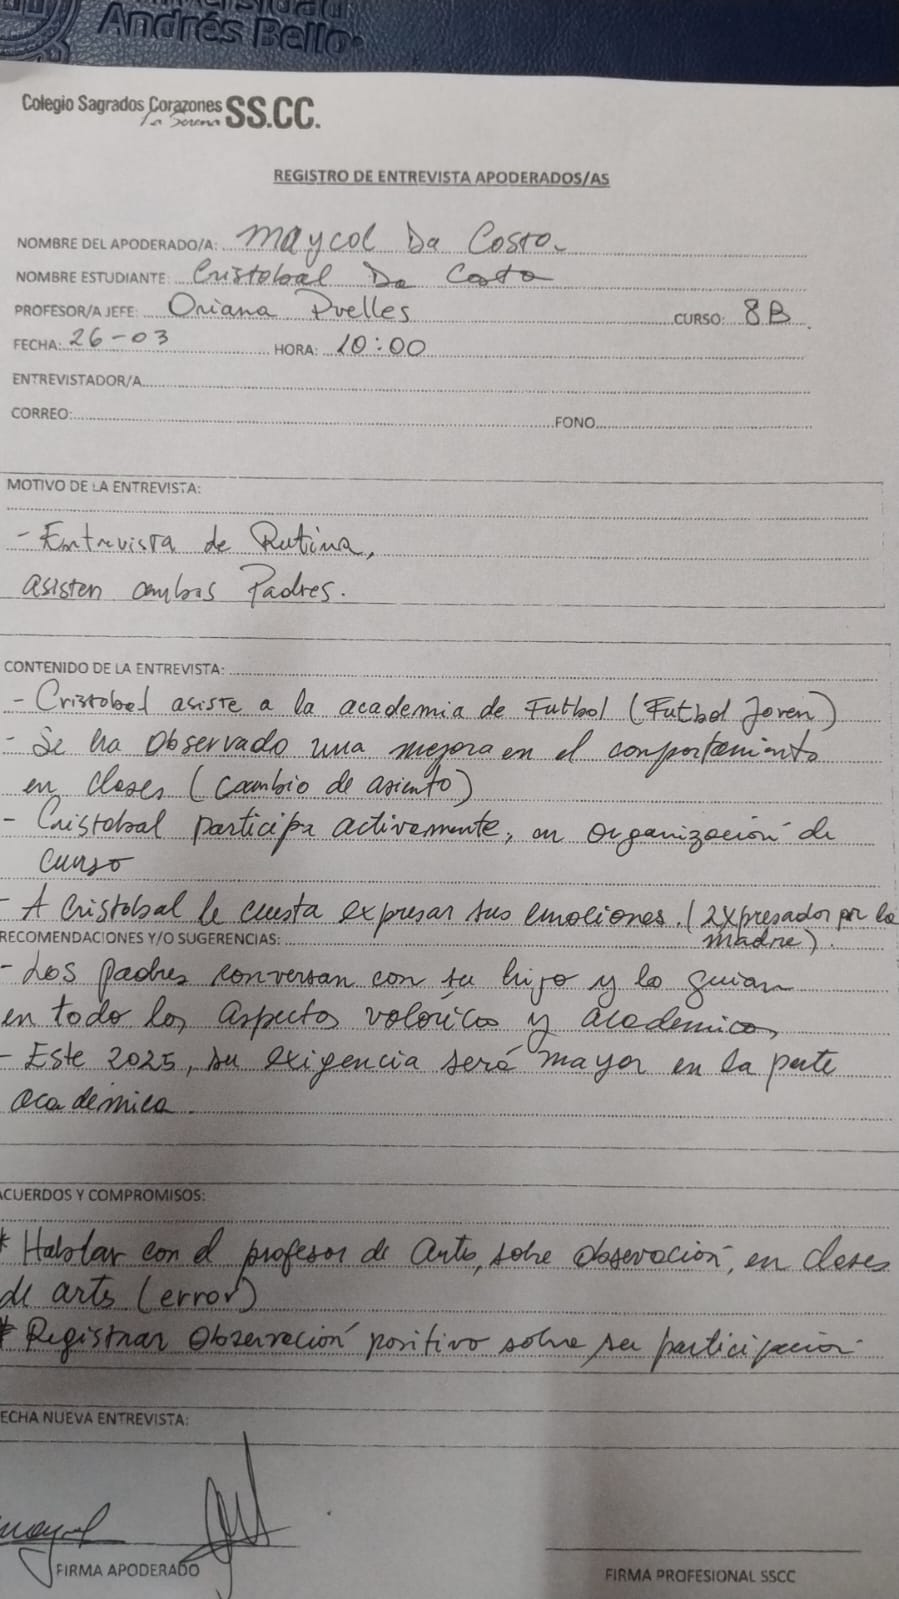 Universidad
Andrés Bello
Colegio Sagrados Corazones SS.CC.
La Serena
REGISTRO DE ENTREVISTA APODERADOS/AS
NOMBRE DEL APODERADO/A: Maycol Da Costa
NOMBRE ESTUDIANTE: Cristobal Da Costa
PROFESOR/A JEFE: Oriana Pvelles CURSO: 8B
FECHA: 26-03 HORA: 10:00
ENTREVISTADOR/A
CORREO: FONO
MOTIVO DE LA ENTREVISTA:
- Entrevista de Rutina,
asisten ambos Padres.
CONTENIDO DE LA ENTREVISTA:
- Cristobal asiste a la academia de Futbol (Futbol Joven)
- Se ha Observado una mejora en el comportamiento
en clases (cambio de asiento)
- Cristobal participa activamente, en organización de
curso
- A Cristobal le cuesta expresar sus emociones. (expresador por la
madre).
RECOMENDACIONES Y/O SUGERENCIAS:
- Los padres conversan con su hijo y lo guian
en todo los aspectos valoricos y academicos
- Este 2025, su exigencia será mayor en la parte
académica
ACUERDOS Y COMPROMISOS:
* Hablar con el profesor de Arte, sobre observación, en clases
de arts (error)
* Registrar Observación positivo sobre su participación
FECHA NUEVA ENTREVISTA:
maycol
FIRMA APODERADO
FIRMA PROFESIONAL SSCC